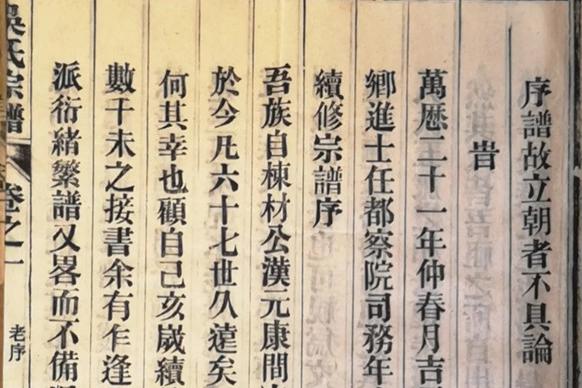 序譜故立朝者不具論
旹
萬歷二十一年仲春月吉
鄉進士任都察院司務年
續修宗譜序
吾族自棟材公漢元康間
於今凡六十七世久遠矣
何其幸也顧自己亥歲續
數千未之接書余有乍逢
派衍緒繁譜又畧而不備
吳氏宗譜
卷之一
老序